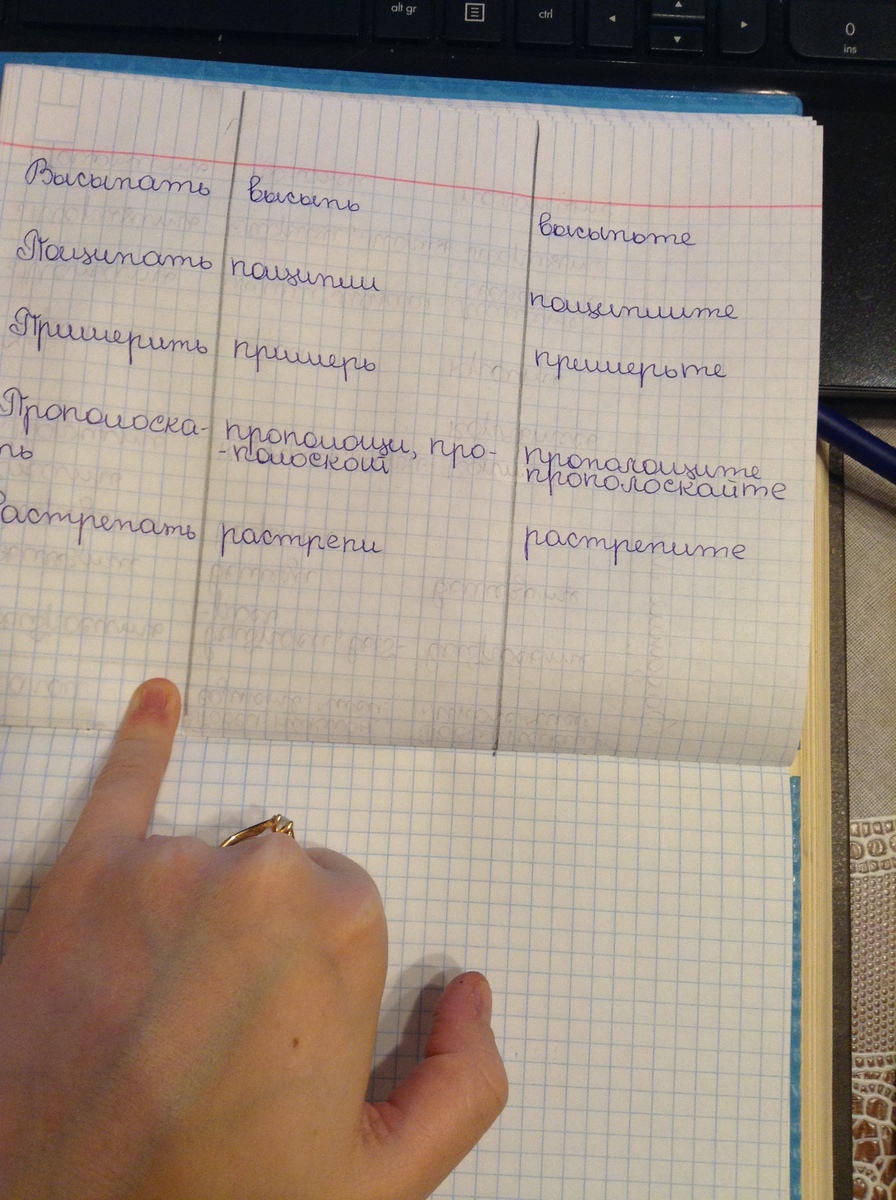 alt gr
ctrl
0
ins
Высыпать высыпь высыпьте
Пощипать пощипли пощиплите
Примерить примерь примерьте
Прополоска- прополощи, про- прополощите
ть -полоскай прополоскайте
Растрепать растрепи растрепите